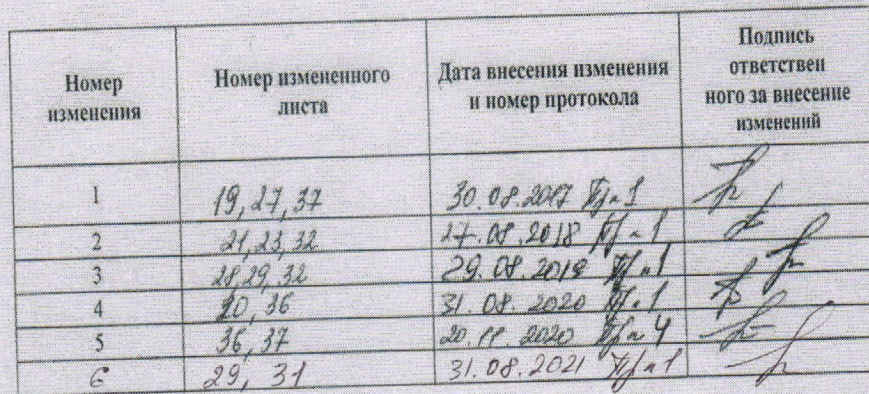 Номер изменения Номер измененного листа Дата внесения изменения и номер протокола Подпись ответствен ного за внесение изменений
1 19, 27, 37 30.08.2017 Пр. 1
2 21, 23, 32 27.08.2018 Пр. 1
3 28, 29, 32 29.08.2019 Пр. 1
4 20, 36 31.08.2020 Пр. 1
5 36, 37 20.11.2020 Пр. 4
6 29, 31 31.08.2021 Пр. 1